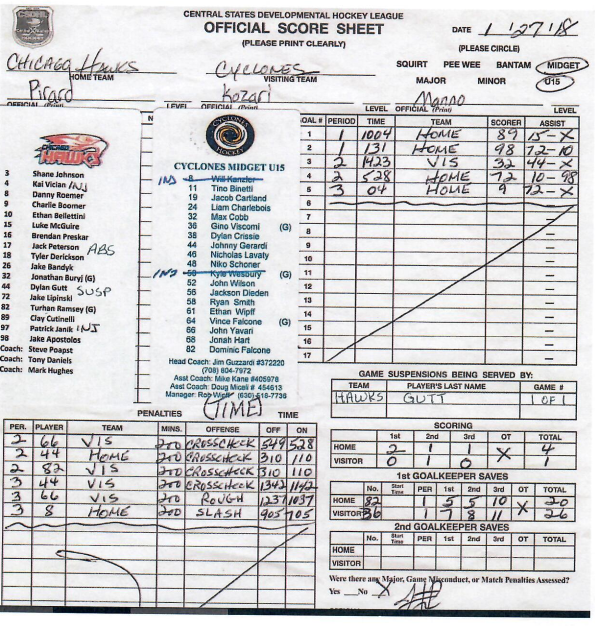 CSDHL
CENTRAL STATES DEVELOPMENTAL HOCKEY LEAGUE
OFFICIAL SCORE SHEET
(PLEASE PRINT CLEARLY)
DATE 1/27/18
(PLEASE CIRCLE)
CHICAGO HAWKS
HOME TEAM
CYCLONES
VISITING TEAM
SQUIRT PEE WEE BANTAM MIDGET
MAJOR MINOR U15
Pirard Kozari Manno
OFFICIAL (Print) LEVEL OFFICIAL (Print) LEVEL OFFICIAL (Print) LEVEL
CHICAGO HAWKS
3 Shane Johnson
4 Kai Vician INJ
8 Danny Roemer
9 Charlie Boomer
10 Ethan Bellettini
15 Luke McGuire
16 Brendan Preskar
17 Jack Peterson ABS
18 Tyler Derickson
26 Jake Bandyk
32 Jonathan Buryj (G)
44 Dylan Gutt SUSP
72 Jake Lipinski
82 Turhan Ramsey (G)
89 Clay Cutinelli
97 Patrick Janik INJ
98 Jake Apostoles
Coach: Steve Poapst
Coach: Tony Daniels
Coach: Mark Hughes
CYCLONES HOCKEY
CYCLONES MIDGET U15
INJ 8 Will Kanzler
11 Tino Binetti
19 Jacob Cartland
24 Liam Charlebois
32 Max Cobb
36 Gino Viscomi (G)
38 Dylan Crissie
44 Johnny Gerardi
46 Nicholas Lavaty
48 Niko Schoner
INJ 50 Kyle Wesbury (G)
52 John Wilson
56 Jackson Dieden
58 Ryan Smith
61 Ethan Wipff
64 Vince Falcone (G)
66 John Yavari
68 Jonah Hart
82 Dominic Falcone
Head Coach: Jim Guzzardi #372220
(708) 604-7972
Asst Coach: Mike Kane #405978
Asst Coach: Doug Miceli # 454613
Manager: Rob Wipff (630)-516-7738
GOAL # PERIOD TIME TEAM SCORER ASSIST
1 1 1004 HOME 89 15-X
2 1 131 HOME 98 72-10
3 2 1423 VIS 32 44-X
4 2 528 HOME 72 10-98
5 3 04 HOME 9 72-X
6 –
7 –
8 –
9 –
10 –
11 –
12 –
13 –
14 –
15 –
16 –
17 –
GAME SUSPENSIONS BEING SERVED BY:
TEAM PLAYER'S LAST NAME GAME #
HAWKS GUTT 1 OF 1
PENALTIES (TIME) TIME
PER. PLAYER TEAM MINS. OFFENSE OFF ON
2 66 VIS 200 CROSSCHECK 549 528
2 44 HOME 200 CROSSCHECK 310 110
2 82 VIS 200 CROSSCHECK 310 110
3 44 VIS 200 CROSSCHECK 1342 1142
3 66 VIS 200 ROUGH 1237 1037
3 8 HOME 200 SLASH 905 705
SCORING
1st 2nd 3rd OT TOTAL
HOME 2 1 1 X 4
VISITOR 0 1 0 1
1st GOALKEEPER SAVES
No. Start Time PER 1st 2nd 3rd OT TOTAL
HOME 82 1 5 5 10 X 20
VISITOR 36 1 7 8 11 26
2nd GOALKEEPER SAVES
No. Start Time PER 1st 2nd 3rd OT TOTAL
HOME
VISITOR
Were there any Major, Game Misconduct, or Match Penalties Assessed?
Yes No X